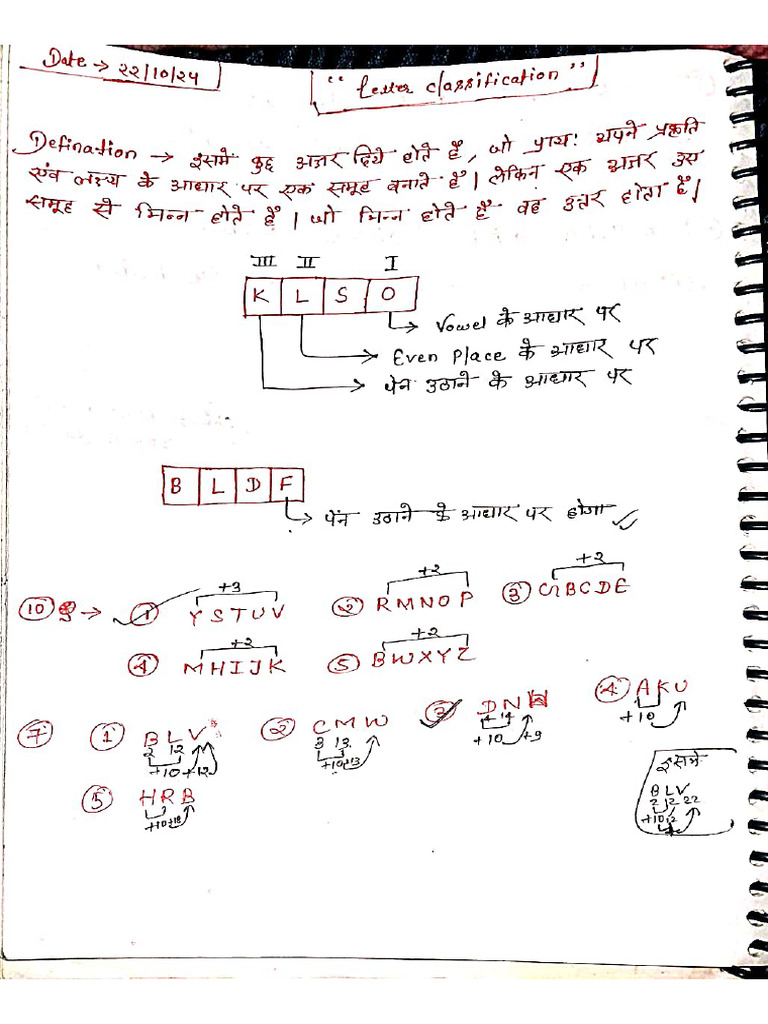 Date → 22/10/24
"Letter classification"
Defination → इसमे कुछ अक्षर दिये होते हैं, जो प्राय: अपने प्रकृति
एंव लक्ष्य के आधार पर एक समूह बनाते है। लेकिन एक अक्षर उस
समूह से भिन्न होते हैं। जो भिन्न होते है वह उत्तर होता हैं।
III II I
K L S O
Vowel के आधार पर
Even Place के आधार पर
पेन उठाने के आधार पर
B L D F
पेंन उठाने के आधार पर होगा
+3 +2 +2
10 → 1 YSTUV 2 RMNOP 3 GBCDE
+2 +2
4 MHIJK 5 BWXYZ
7 1 BLV 2 CMW 3 DN 4 AKU
2 12 3 13 4 14 +10
+10 +12 +10 +13 +10 +9
5 HRB
+10 +18
इसमे
BLV
2 12 22
+10 12